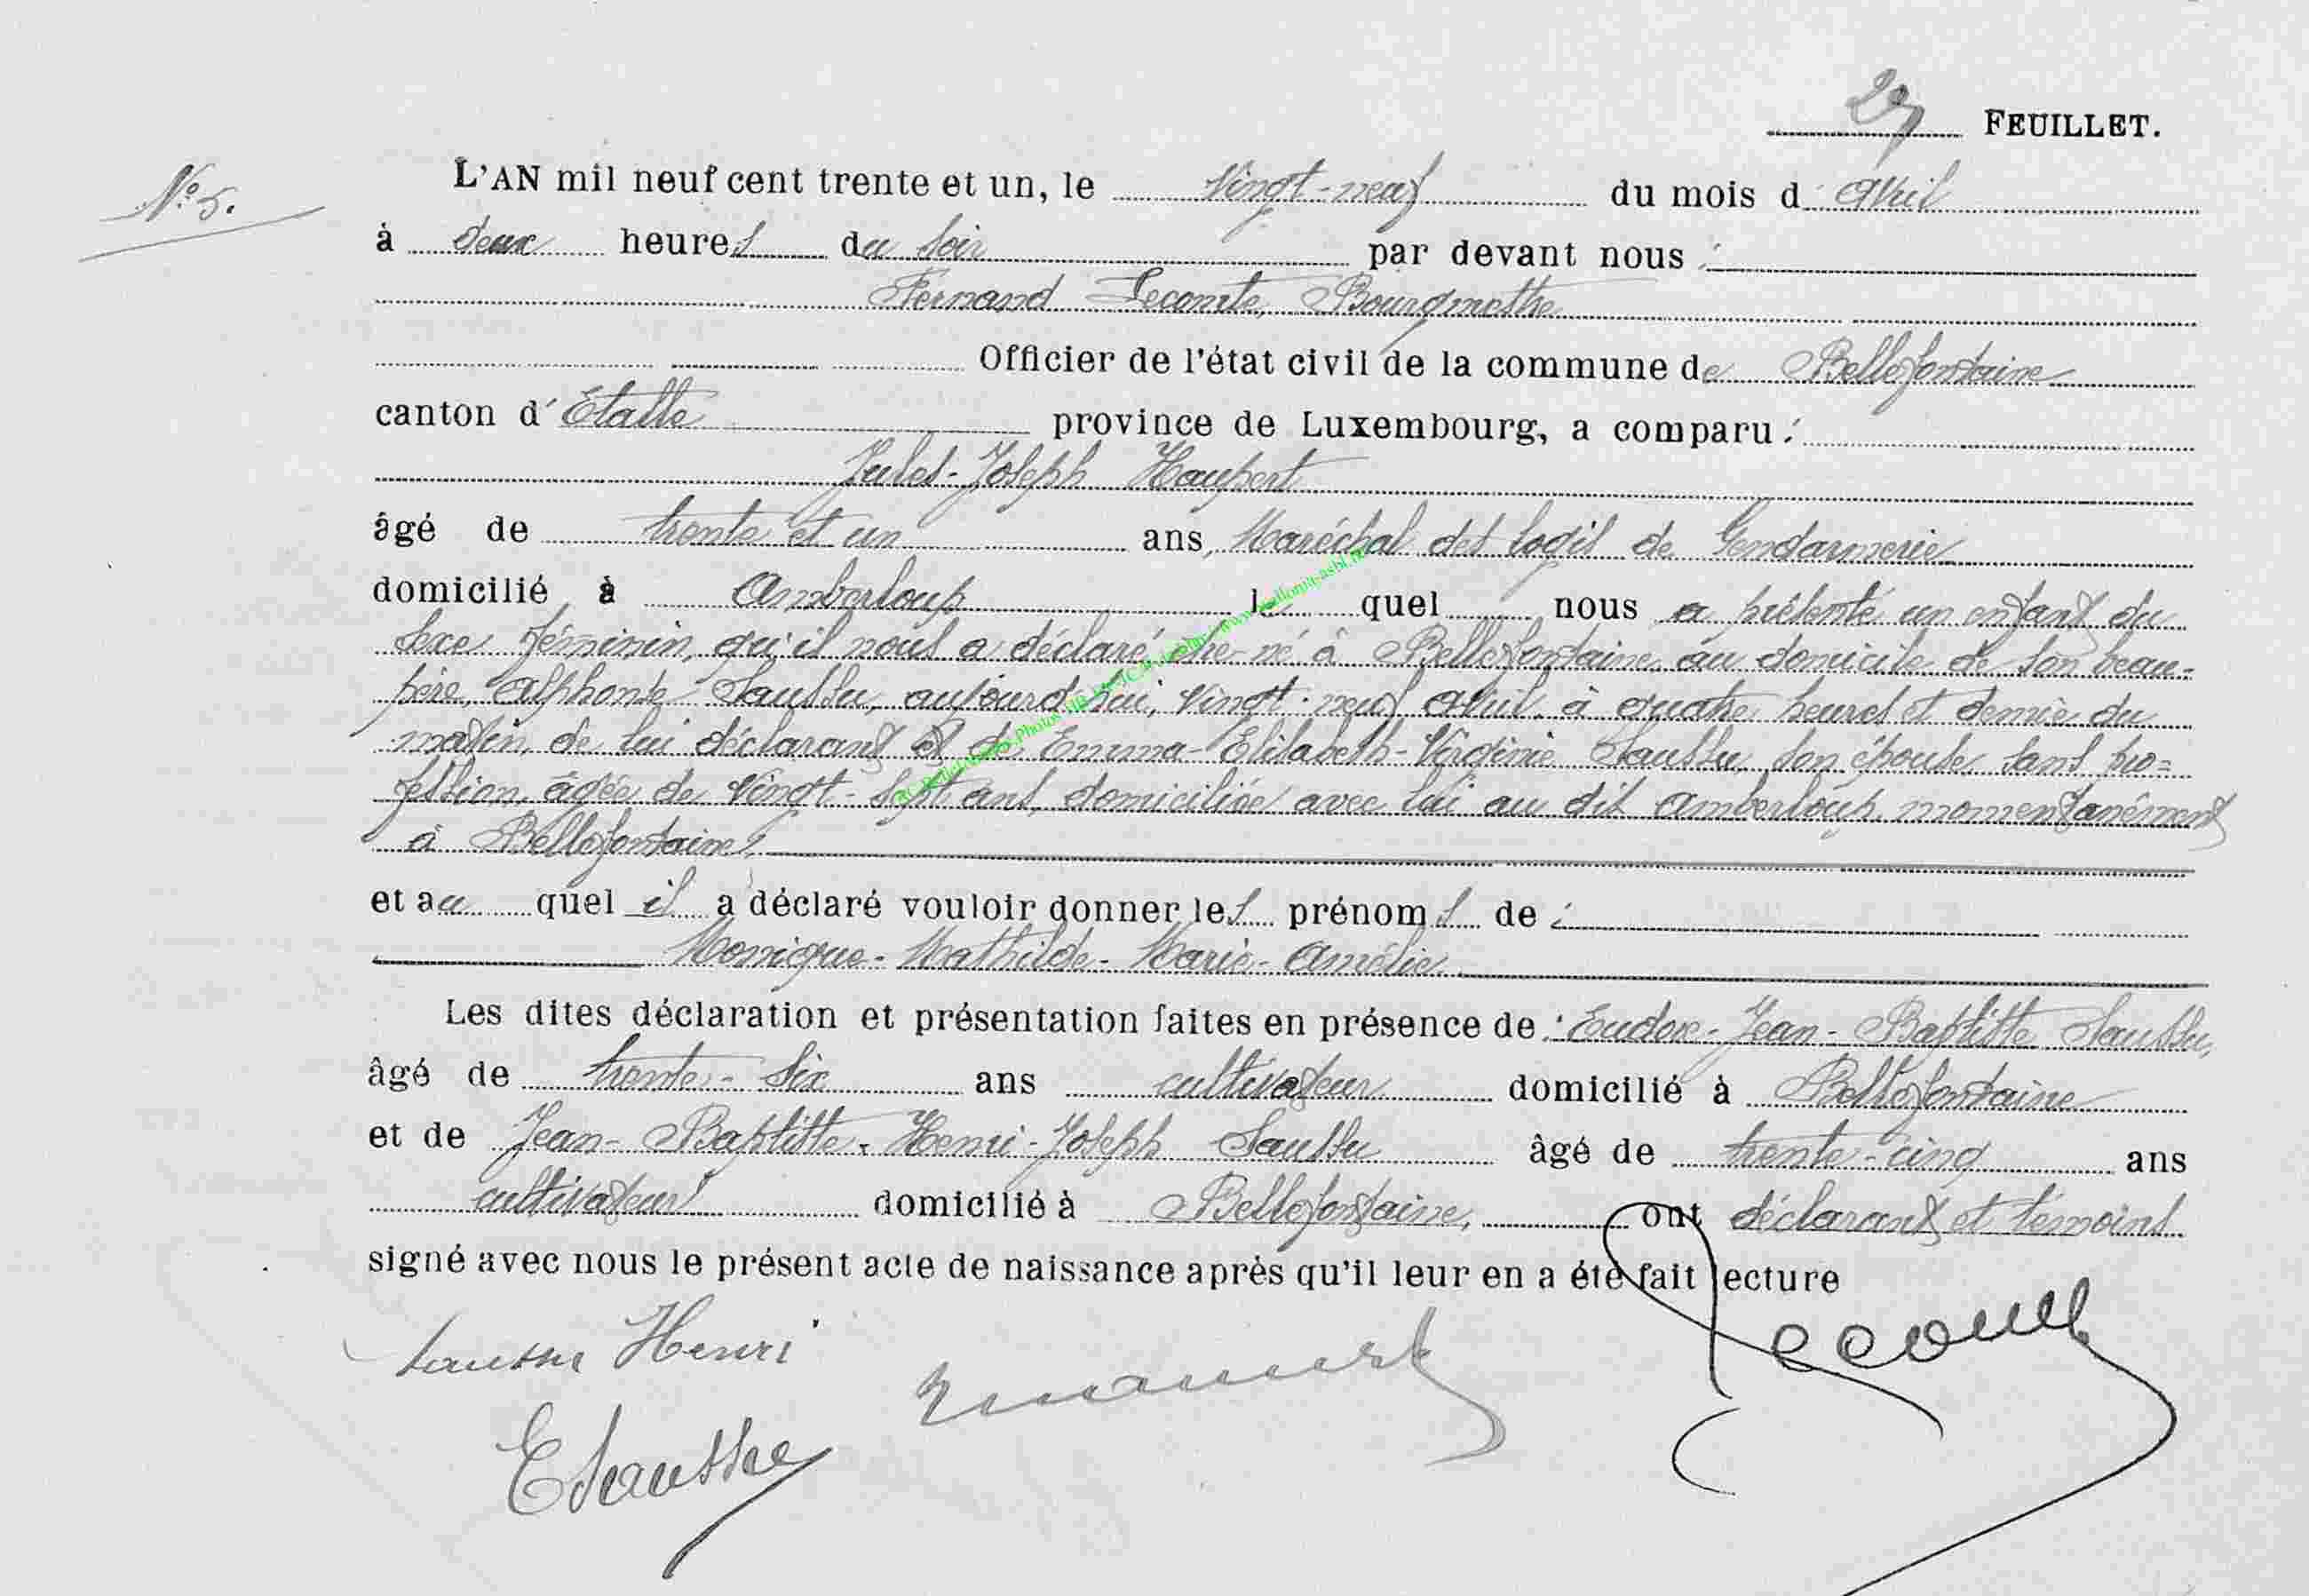 29 FEUILLET.
N° 5.
L'AN mil neuf cent trente et un, le Vingt-neuf du mois d'Avril
à deux heures du soir par devant nous :
Fernand Lecomte, Bourgmestre
Officier de l'état civil de la commune de Bellefontaine
canton d'Etalle province de Luxembourg, a comparu :
Jules-Joseph Haupert
âgé de trente et un ans, Maréchal des logis de Gendarmerie
domicilié à Amberloup lequel nous a présenté un enfant du
sexe féminin, qu'il nous a déclaré être né à Bellefontaine, au domicile de son beau-
père, Alphonse Saussu, aujourd'hui, Vingt-neuf Avril, à quatre heures et demie du
matin, de lui déclarant et de Emma-Elisabeth-Virginie Saussu, son épouse, sans pro=
fession, âgée de Vingt-sept ans, domiciliée avec lui au dit Amberloup, momentanément
à Bellefontaine,
et auquel il a déclaré vouloir donner les prénoms de :
Monique-Mathilde-Marie-Amélie
Les dites déclaration et présentation faites en présence de : Eudore-Jean-Baptiste Saussu,
âgé de trente-six ans cultivateur domicilié à Bellefontaine
et de Jean-Baptiste-Henri-Joseph Saussu âgé de trente-cinq ans
cultivateur domicilié à Bellefontaine, ont déclarant et témoins
signé avec nous le présent acte de naissance après qu'il leur en a été fait lecture
Saussu Henri
Lecomte
E Saussu